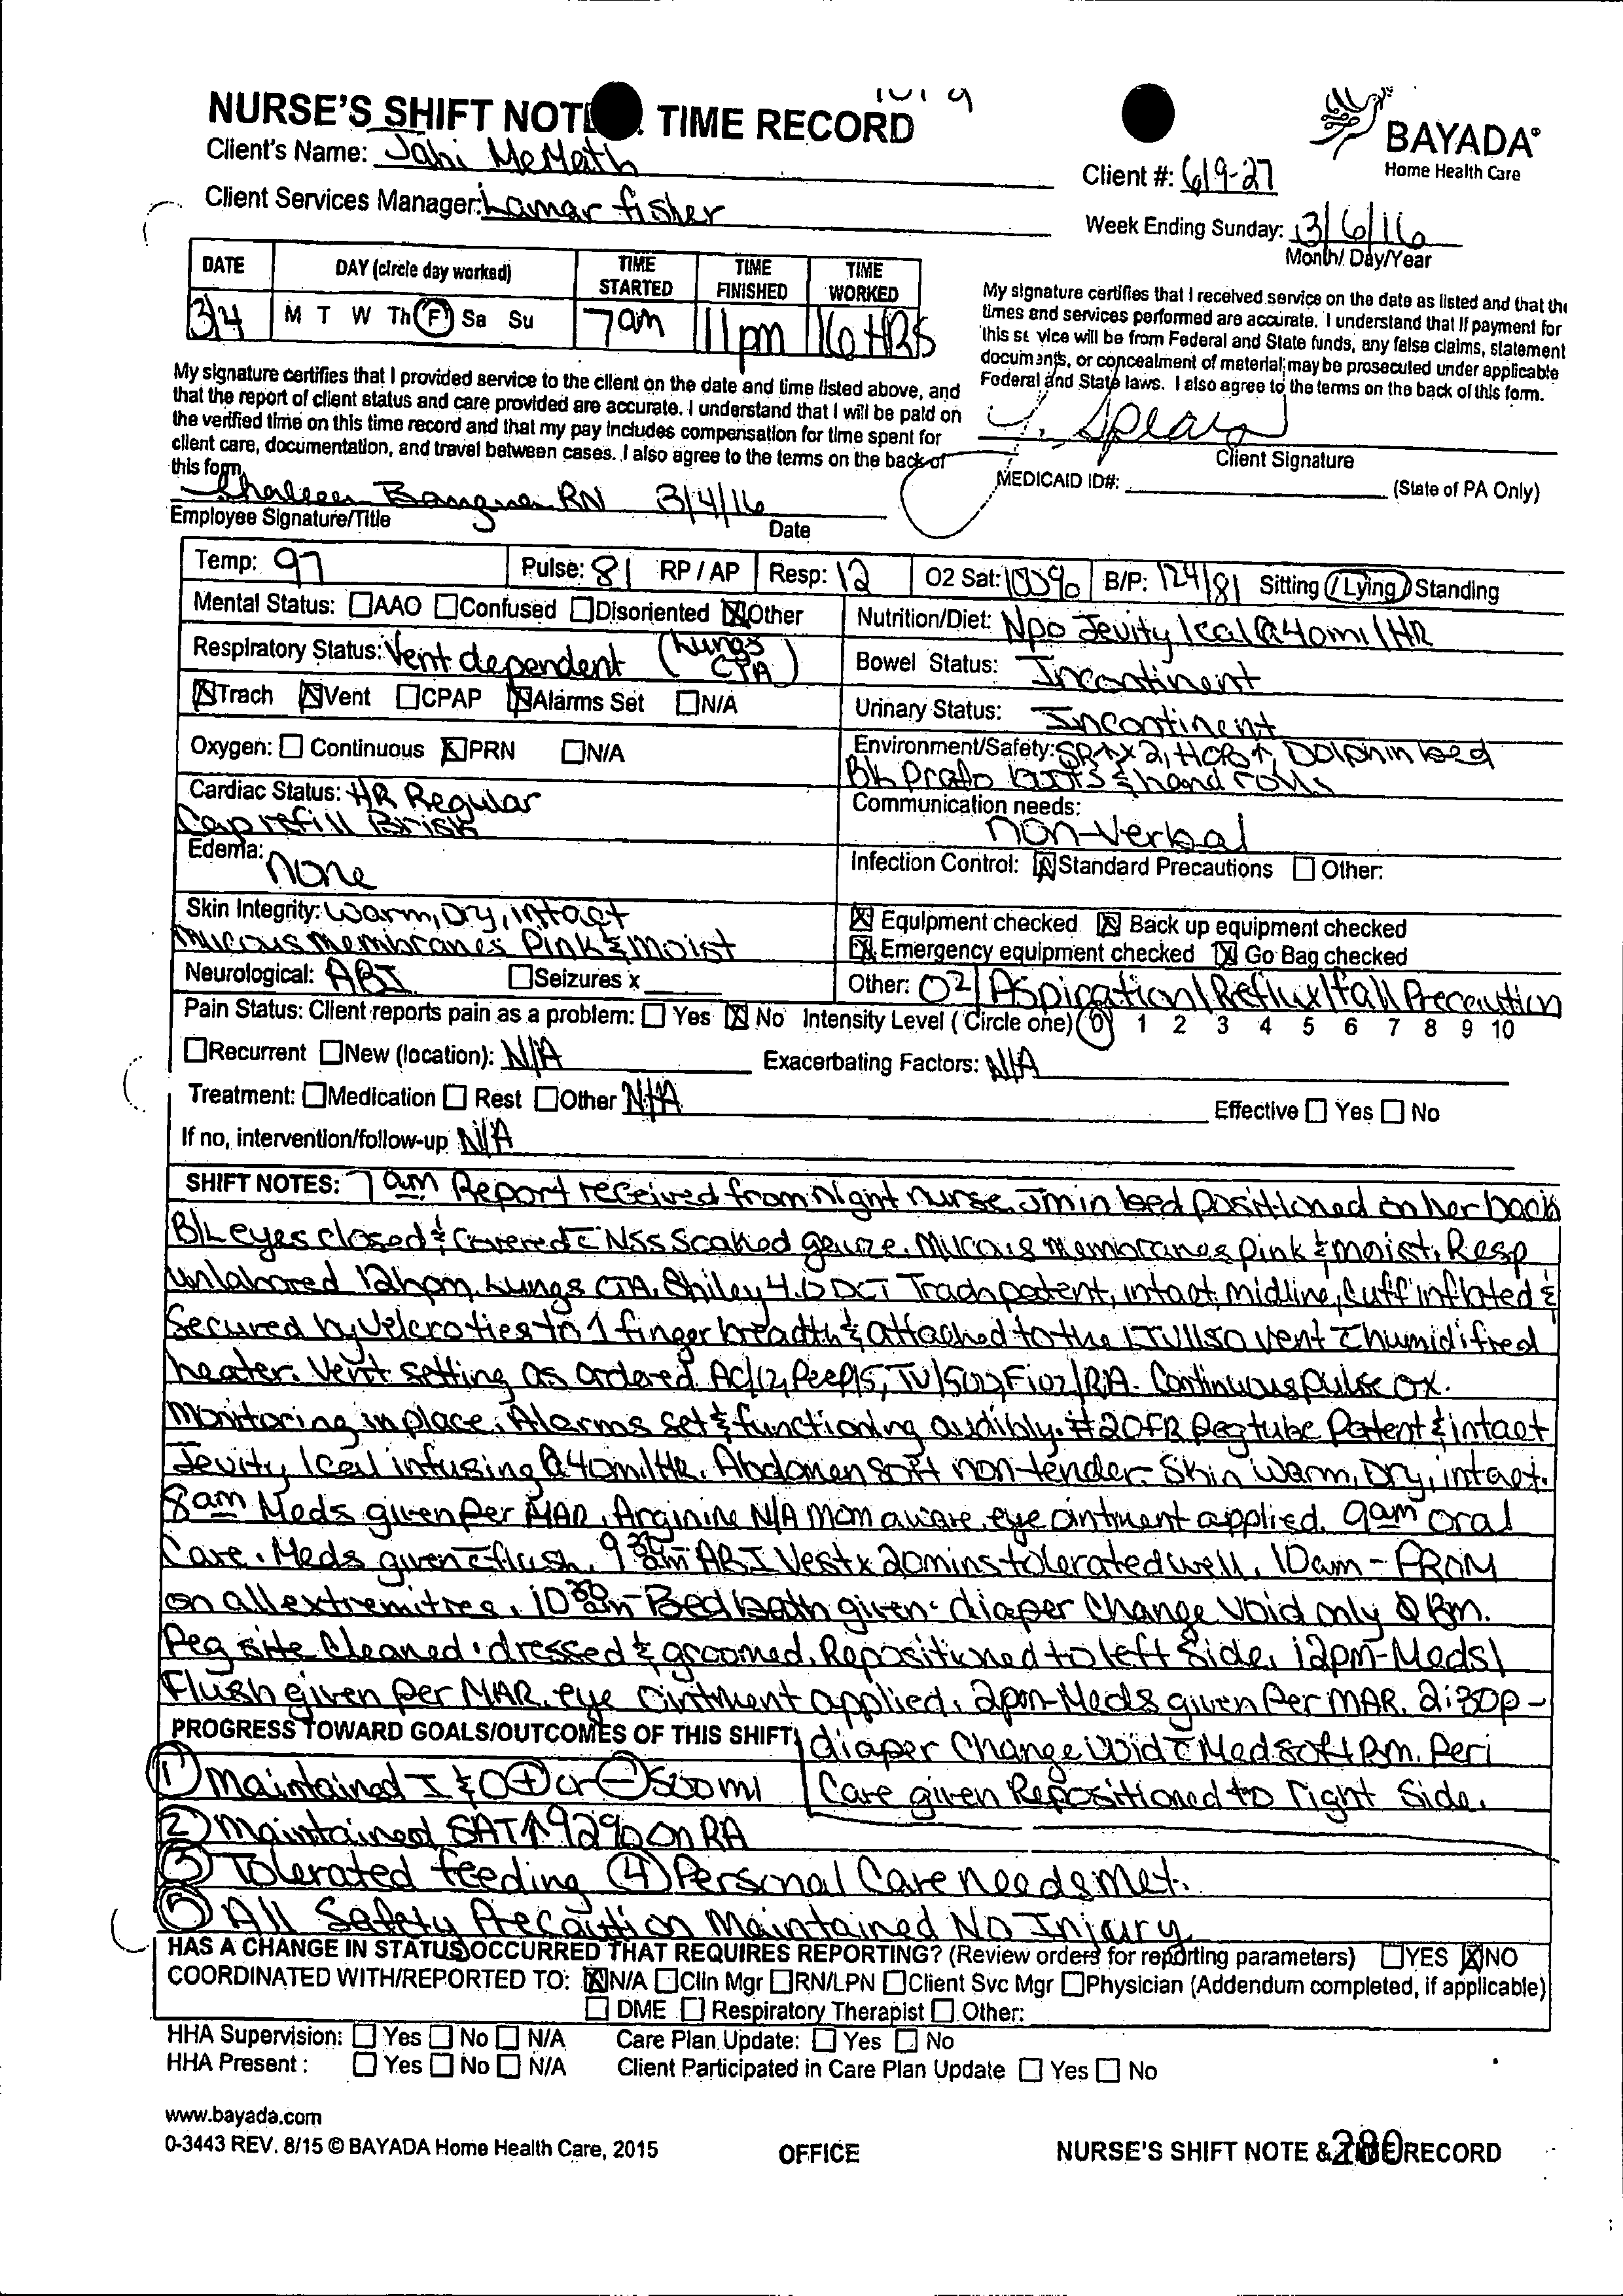 NURSE'S SHIFT NOTE TIME RECORD
BAYADA®
Home Health Care
Client's Name: Jahi McMath
Client #: 619-27
Client Services Manager: Lamar fisher
Week Ending Sunday: 3/6/16
Month/ Day/Year
DATE DAY (circle day worked) TIME STARTED TIME FINISHED TIME WORKED
3/4 M T W Th F Sa Su 7am 11pm 16 HRS
My signature certifies that I received service on the date as listed and that the
times and services performed are accurate. I understand that if payment for
this service will be from Federal and State funds, any false claims, statement
documents, or concealment of material, may be prosecuted under applicable
Federal and State laws. I also agree to the terms on the back of this form.
My signature certifies that I provided service to the client on the date and time listed above, and
that the report of client status and care provided are accurate. I understand that I will be paid on
the verified time on this time record and that my pay includes compensation for time spent for
client care, documentation, and travel between cases. I also agree to the terms on the back of
this form.
Client Signature
MEDICAID ID#: (State of PA Only)
RN 3/4/16
Employee Signature/Title Date
Temp: 97 Pulse: 81 RP / AP Resp: 12 O2 Sat: 100% B/P: 124/81 Sitting / Lying / Standing
Mental Status: ☐AAO ☐Confused ☐Disoriented ☒Other
Nutrition/Diet: Npo Jevity 1cal @ 40ml/HR
Respiratory Status: Vent dependent (Lungs CTA)
Bowel Status: Incontinent
☒Trach ☒Vent ☐CPAP ☒Alarms Set ☐N/A
Urinary Status: Incontinent
Oxygen: ☐ Continuous ☒PRN ☐N/A
Environment/Safety: SR↑x2, HOB↑, Dolphin bed
B/L Prafo boots & hand rolls
Cardiac Status: HR Regular
Cap refill Brisk
Communication needs:
non-verbal
Edema: none
Infection Control: ☒Standard Precautions ☐ Other:
Skin Integrity: Warm, Dry, intact
Mucous membranes Pink & moist
☒ Equipment checked ☒ Back up equipment checked
☒ Emergency equipment checked ☒ Go Bag checked
Neurological: ABI ☐Seizures x
Other: O2/Aspiration/Reflux/fall Precaution
Pain Status: Client reports pain as a problem: ☐ Yes ☒ No Intensity Level (Circle one) 0 1 2 3 4 5 6 7 8 9 10
☐Recurrent ☐New (location): N/A Exacerbating Factors: N/A
Treatment: ☐Medication ☐ Rest ☐Other N/A Effective ☐ Yes ☐ No
If no, intervention/follow-up N/A
SHIFT NOTES: 7am Report received from night nurse. Jm in bed positioned on her back
B/L eyes closed & covered c̄ NSS soaked gauze. Mucous membranes pink & moist. Resp
unlabored 12bpm. Lungs CTA. Shiley 4.0 DCT Trach patent, intact, midline, cuff inflated &
Secured by velcro ties to 1 finger breadth & attached to the LTV1150 vent c̄ humidified
heater. Vent setting as ordered AC/12, Peep/5, TV/500, Fio2/RA. Continuous pulse ox.
monitoring in place. Alarms set & functioning audibly. #20FR Peg tube Patent & intact
Jevity 1cal infusing @ 40ml/HR. Abdomen soft non-tender. Skin Warm, Dry, intact.
8am Meds given Per MAR. Arginine N/A mom aware, eye ointment applied. 9am oral
Care. Meds given c̄ flush. 9 30 am ABI Vest x 20mins tolerated well. 10am - PROM
on all extremities. 10 30 am - Bed bath given. diaper change void only 0 Bm.
Peg site cleaned. dressed & groomed. Repositioned to left side. 12pm - Meds/
Flush given per MAR. eye ointment applied. 2pm - Meds given Per MAR. 2:30p -
PROGRESS TOWARD GOALS/OUTCOMES OF THIS SHIFT: diaper change void c̄ Med soft Bm. Peri
care given Repositioned to right side.
① maintained I & O + or - 500ml
② maintained SAT ↑ 92% on RA
③ Tolerated feeding ④ Personal Care needs met.
⑤ All Safety Precaution Maintained No Injury
HAS A CHANGE IN STATUS OCCURRED THAT REQUIRES REPORTING? (Review orders for reporting parameters) ☐YES ☒NO
COORDINATED WITH/REPORTED TO: ☒N/A ☐Clin Mgr ☐RN/LPN ☐Client Svc Mgr ☐Physician (Addendum completed, if applicable)
☐ DME ☐ Respiratory Therapist ☐ Other:
HHA Supervision: ☐ Yes ☐ No ☐ N/A Care Plan Update: ☐ Yes ☐ No
HHA Present : ☐ Yes ☐ No ☐ N/A Client Participated in Care Plan Update ☐ Yes ☐ No
www.bayada.com
0-3443 REV. 8/15 © BAYADA Home Health Care, 2015 OFFICE NURSE'S SHIFT NOTE & TIME RECORD
280